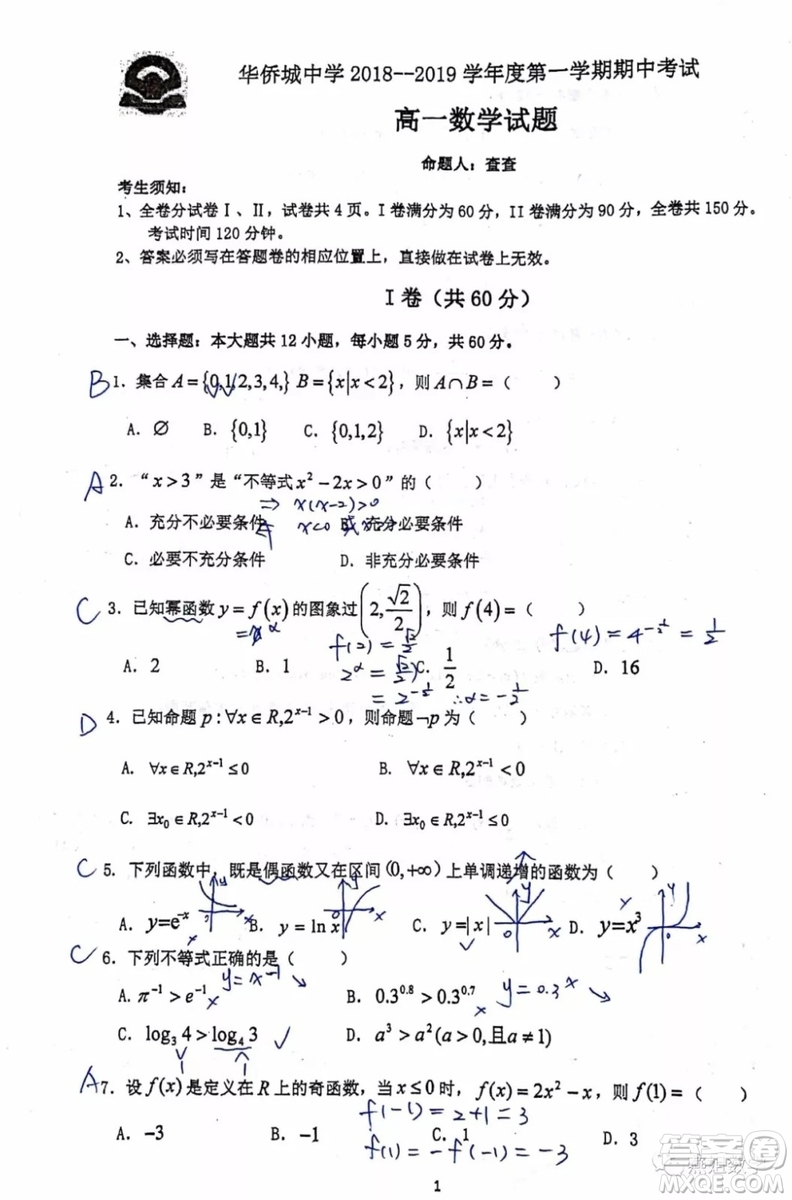 华侨城中学 2018--2019 学年度第一学期期中考试
高一数学试题
命题人：查查
考生须知：
1、全卷分试卷Ⅰ、Ⅱ，试卷共 4 页。Ⅰ卷满分为 60 分，II 卷满分为 90 分，全卷共 150 分。
考试时间 120 分钟。
2、答案必须写在答题卷的相应位置上，直接做在试卷上无效。
Ⅰ卷（共 60 分）
一、选择题：本大题共 12 小题，每小题 5 分，共 60 分。
B 1. 集合 A={0,1,2,3,4,} B={x|x<2}，则 A∩B=（ ）
A. ∅ B. {0,1} C. {0,1,2} D. {x|x<2}
A 2. “x>3”是“不等式 x²-2x>0”的（ ）
⇒ x(x-2)>0
A. 充分不必要条件 x<0 或 B. 充分必要条件
C. 必要不充分条件 D. 非充分必要条件
C 3. 已知幂函数 y=f(x) 的图象过 (2, √2/2)，则 f(4)=（ ）
=x^α f(2)=√2/2 f(4)=4^(-1/2)=1/2
A. 2 B. 1 2^α=√2/2 C. 1/2 D. 16
=2^(-1/2) ∴α=-1/2
D 4. 已知命题 p:∀x∈R,2^(x-1)>0，则命题¬p 为（ ）
A. ∀x∈R,2^(x-1)≤0 B. ∀x∈R,2^(x-1)<0
C. ∃x₀∈R,2^(x-1)<0 D. ∃x₀∈R,2^(x-1)≤0
C 5. 下列函数中，既是偶函数又在区间 (0,+∞) 上单调递增的函数为（ ）
A. y=e^(-x) B. y=ln x C. y=|x| D. y=x³
C 6. 下列不等式正确的是（ ）
y=x^(-1) ↘
A. π^(-1)>e^(-1) × B. 0.3^0.8>0.3^0.7 × y=0.3^x ↘
C. log₃4>log₄3 ✓ D. a³>a²(a>0,且a≠1)
A 7. 设 f(x) 是定义在 R 上的奇函数，当 x≤0 时，f(x)=2x²-x，则 f(1)=（ ）
f(-1)=2+1=3
A. -3 B. -1 C. 1 D. 3
f(1)=-f(-1)=-3
1
答案圈
MXQE.COM